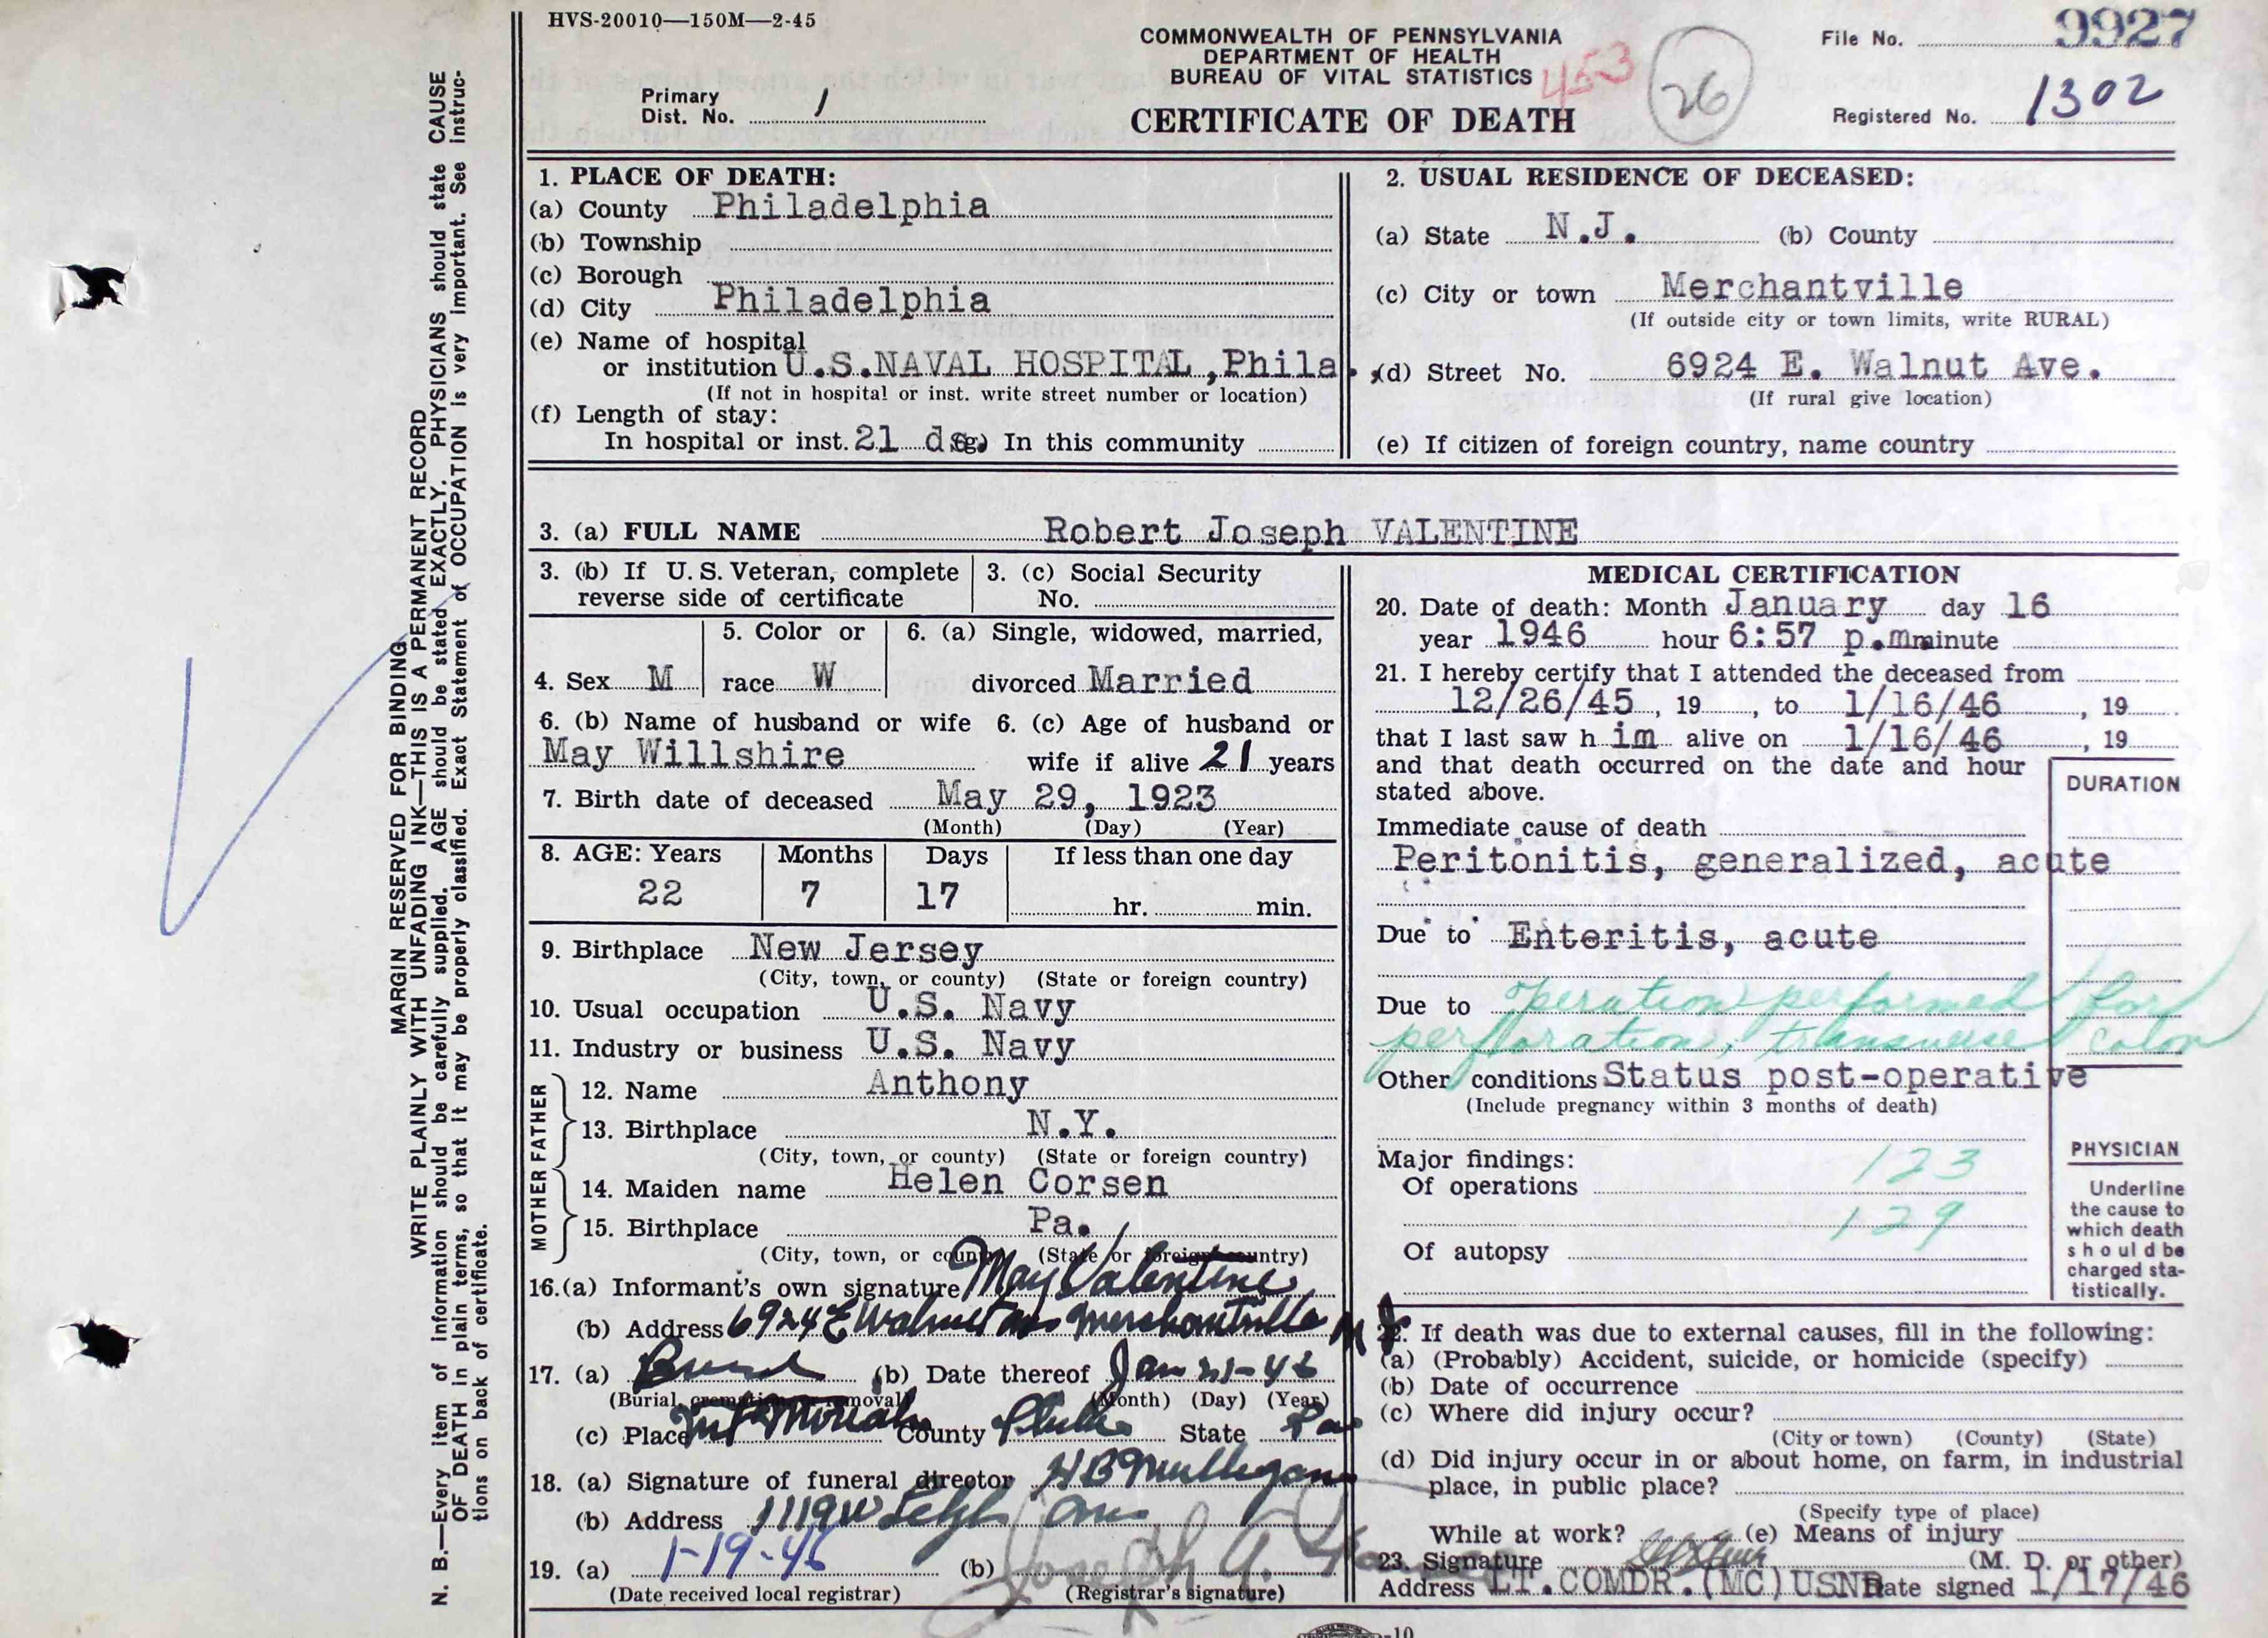 HVS-20010—150M—2-45
COMMONWEALTH OF PENNSYLVANIA
DEPARTMENT OF HEALTH
BUREAU OF VITAL STATISTICS
453
26
File No. 9927
Primary
Dist. No. 1
CERTIFICATE OF DEATH
Registered No. 1302
MARGIN RESERVED FOR BINDING
WRITE PLAINLY WITH UNFADING INK—THIS IS A PERMANENT RECORD
N. B.—Every item of information should be carefully supplied. AGE should be stated EXACTLY. PHYSICIANS should state CAUSE
OF DEATH in plain terms, so that it may be properly classified. Exact Statement of OCCUPATION is very important. See instruc-
tions on back of certificate.
1. PLACE OF DEATH:
(a) County Philadelphia
(b) Township
(c) Borough
(d) City Philadelphia
(e) Name of hospital
or institution U.S.NAVAL HOSPITAL,Phila.,
(If not in hospital or inst. write street number or location)
(f) Length of stay:
In hospital or inst. 21 ds. (g) In this community
2. USUAL RESIDENCE OF DECEASED:
(a) State N.J. (b) County
(c) City or town Merchantville
(If outside city or town limits, write RURAL)
(d) Street No. 6924 E. Walnut Ave.
(If rural give location)
(e) If citizen of foreign country, name country
3. (a) FULL NAME Robert Joseph VALENTINE
3. (b) If U.S. Veteran, complete
reverse side of certificate
3. (c) Social Security
No.
4. Sex M
5. Color or
race W
6. (a) Single, widowed, married,
divorced Married
6. (b) Name of husband or wife
May Willshire
6. (c) Age of husband or
wife if alive 21 years
7. Birth date of deceased May 29, 1923
(Month) (Day) (Year)
8. AGE: Years Months Days If less than one day
22 7 17 hr. min.
9. Birthplace New Jersey
(City, town, or county) (State or foreign country)
10. Usual occupation U.S. Navy
11. Industry or business U.S. Navy
FATHER
12. Name Anthony
13. Birthplace N.Y.
(City, town, or county) (State or foreign country)
MOTHER
14. Maiden name Helen Corsen
15. Birthplace Pa.
(City, town, or county) (State or foreign country)
16.(a) Informant's own signature May Valentine
(b) Address 6924 E Walnut ave Merchantville N J
17. (a) Burial (b) Date thereof Jan 21-46
(Burial, cremation, or removal) (Month) (Day) (Year)
(c) Place Mt Moriah County Phila State Pa
18. (a) Signature of funeral director H B Mulligan
(b) Address 1119 W Lehigh ave
19. (a) 1-19-46 (b) Joseph A.
(Date received local registrar) (Registrar's signature)
MEDICAL CERTIFICATION
20. Date of death: Month January day 16
year 1946 hour 6:57 p.m. minute
21. I hereby certify that I attended the deceased from
12/26/45, 19 , to 1/16/46, 19
that I last saw h im alive on 1/16/46, 19
and that death occurred on the date and hour
stated above.
DURATION
Immediate cause of death
Peritonitis, generalized, acute
Due to Enteritis, acute
Due to Operation performed for
perforation, transverse colon
Other conditions Status post-operative
(Include pregnancy within 3 months of death)
Major findings: 123
Of operations
129
Of autopsy
PHYSICIAN
Underline
the cause to
which death
should be
charged sta-
tistically.
22. If death was due to external causes, fill in the following:
(a) (Probably) Accident, suicide, or homicide (specify)
(b) Date of occurrence
(c) Where did injury occur?
(City or town) (County) (State)
(d) Did injury occur in or about home, on farm, in industrial
place, in public place?
(Specify type of place)
While at work? (e) Means of injury
23. Signature (M. D. or other)
Address LT.COMDR.(MC)USNR Date signed 1/17/46
-10